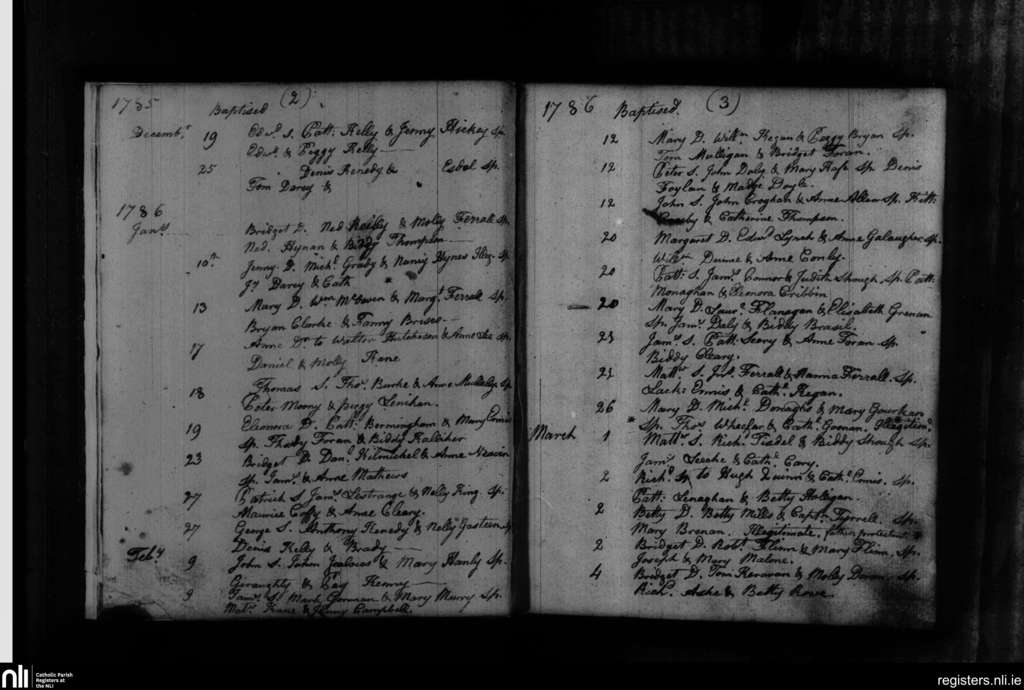 1785
Baptised (2)
Decembr 19 Edwd S. Patt: Kelly & Jenny Hickey Sp.
Edwd & Peggy Kelly
25 Denis Kenedy & Esdal Sp.
Tom Darcy &
1786
Jany Bridget D. Ned Reilly & Molly Ferrall Sp.
Ned. Hynan & Biddy Thompson
10th Jenny D. Michl Grady & Hynes Sp.
Js Darcy & Cath
13 Mary D. Wm McGwen & Margt Ferrall Sp.
Bryan Clarke & Fanny
17 Anne Dr. to Hutcheson & Anne Sp.
Daniel & Molly Kane
18 Thomas S. Thos. Burke & Anne Mullally Sp.
Peter Moony & Peggy Lenihan.
19 Eleonora D. Patt: Bermingham & Mary Ennis
Sp. Thady Foran & Biddy Kalliher
23 Bridget D. Danl. & Anne
Sp. Jams. & Anne Mathews
27 Patrick S. Jams Lestrange & Nelly King. Sp.
Maurice Coffy & Anne Cleary.
27 George S. Anthony Kenedy & Nelly Sp
Denis Kelly & Brady
Feby 9 John S. John & Mary Hanly Sp.
Geraughty & Kenny
9 Jams. S. Mark Gorman & Mary Murry Sp.
Kane & Jenny Campbell.
1786 Baptised. (3)
12 Mary D. Willm Kegan & Peggy Bryan Sp.
Tom Mulligan & Bridget Foran.
12 Peter S. John Daly & Mary Sp. Denis
Foylan & Madge Doyle.
12 John S. John Croghan & Anne Sp. Kitt:
& Catherine Thompson.
20 Margaret D. Edwd Lynch & Anne Galaugher Sp.
Willm Dunne & Anne Conly.
20 Patt: S. Jams Connor & Judith Shough Sp. Patt:
Monaghan & Eleonora Cribbin
20 Mary D. Laurs. Flanagan & Elisabeth Grenan
Sp. Jams Daly & Biddy Brasil.
23 Jams. S. Patt: Seery & Anne Foran Sp
Biddy Cleary.
21 Mattw S. Jns. Ferrall & Ferrall. Sp.
Lack: Ennis & Cathe. Kegan.
26 Mary D. Michl. & Mary
Sp. Thos & Cath: Illegitime
March 1 Mattw. S. Richd. Tisdel & Biddy Shough Sp.
Jams. Leeche & Cathe. Cary.
2 Richd. to Hugh Quinn & Cathe. Ennis. Sp.
Patt: Lenaghan & Betty
2 Betty D. Betty Mills & Captn Tyrrell. Sp.
Mary Brenan. Illegitimate, father protestant
2 Bridget D. Robt. Flinn & Mary Flinn. Sp.
Joseph & Mary Malone.
4 Bridget D. Tom Keravan & Molly Doran. Sp.
Richd. Ashe & Betty Rowe.
nli
Catholic Parish
Registers at
the NLI
registers.nli.ie